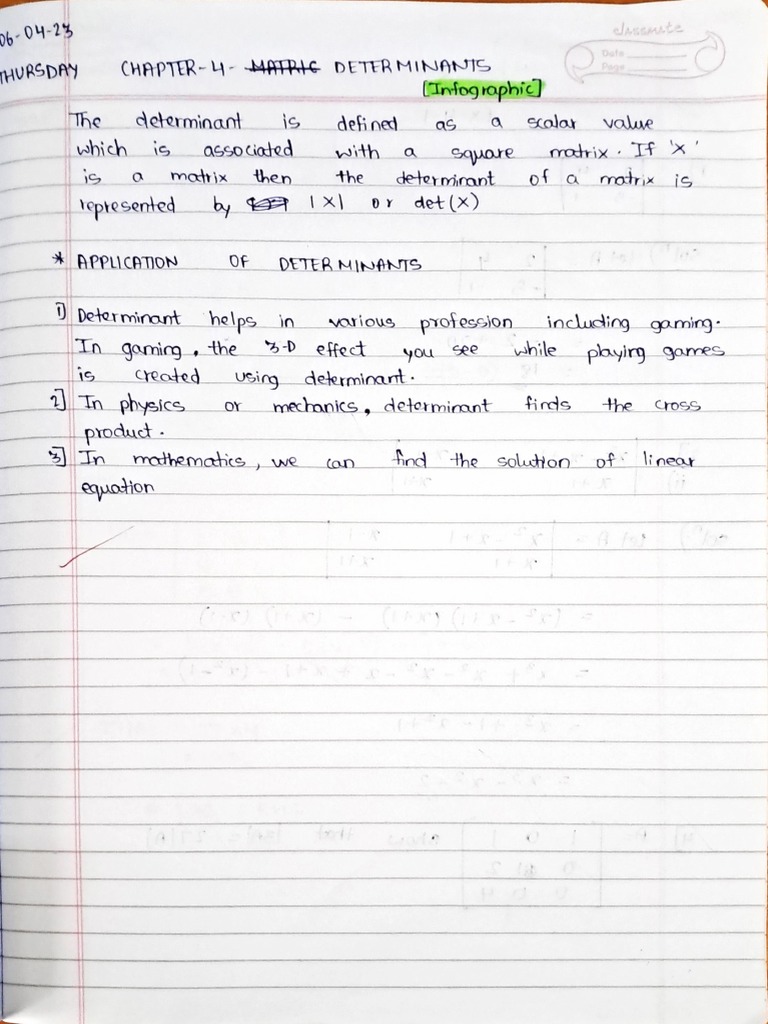 06-04-23
classmate
Date
Page
THURSDAY CHAPTER-4- MATRIC DETERMINANTS
[Infographic]
The determinant is defined as a scalar value
which is associated with a square matrix. If 'X'
is a matrix then the determinant of a matrix is
represented by |X| or det(X)
* APPLICATION OF DETERMINANTS
1] Determinant helps in various profession including gaming.
In gaming, the 3-D effect you see while playing games
is created using determinant.
2] In physics or mechanics, determinant finds the cross
product.
3] In mathematics, we can find the solution of linear
equation